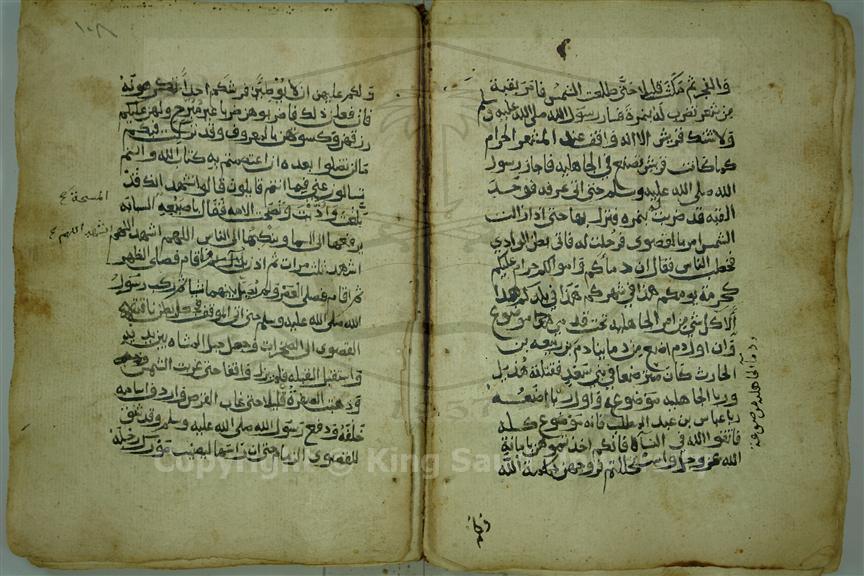 والفجر ثم مكث قليلا حتى طلعت الشمس فامر بقبة
من شعر تضرب له بنمرة فسار رسول الله صلى الله عليه وسلم
ولا تشك قريش الا انه واقف عند المشعر الحرام
كما كانت قريش تصنع في الجاهليه فاجاز رسول
الله صلى الله عليه وسلم حتى اتى عرفه فوجد
القبه قد ضربت بنمره فنزل بها حتى اذا زالت
الشمس امر بالقصوى فرحلت له فاتى بطن الوادي
فخطب الناس فقال ان دماكم واموالكم حرام عليكم
كحرمة يومكم هذا في شهركم هذا في بلدكم هذا
الا كل شي من امر الجاهليه تحت قدمي موضوع
وان اول دم اضع من دماينا دم بن ربيعه بن
الحارث كان مسترضعا في بني سعد فقتلته هذيل
وربا الجاهليه موضوعه واول ربا اضعه
ربا عباس بن عبد المطلب فانه موضوع كله
فاتقوا الله في النساء فانكم اخذتموهن بامانة
الله عز وجل واستحللتم فروجهن بكلمة الله
ودماء الجاهلية موضوعة
ولكم
١٠٨
ولكم عليهن ان لا يوطئن فرشكم احدا تكرهونه
فان فعلن ذلك فاضربوهن ضربا غير مبرح ولهن عليكم
رزقهن وكسوتهن بالمعروف وقد تركت فيكم
ما لن تضلوا بعده ان اعتصمتم به كتاب الله وانتم
تسالون عني فما انتم قايلون قالوا نشهد انك قد
بلغت واديت ونصحت فقال باصبعه السبابه
يرفعها الى السما وينكتها الى الناس اللهم اشهد اللهم
اشهد ثلث مرات ثم اذن ثم اقام فصلى الظهر
ثم اقام فصلى العصر ولم يصل بينهما شيا ثم ركب رسول
الله صلى الله عليه وسلم حتى اتى الموقف فجعل بطن ناقته
القصوى الى الصخرات وجعل حبل المشاه بين يديه
واستقبل القبله فلم يزل واقفا حتى غربت الشمس
وذهبت الصفرة قليلا حتى غاب القرص واردف اسامه
خلفه ودفع رسول الله صلى الله عليه وسلم وقد شنق
للقصوى الزمام حتى ان راسها ليصيب مورك رحله
المسبحة
اشهد اللهم
Copyright © King Saud University
1957